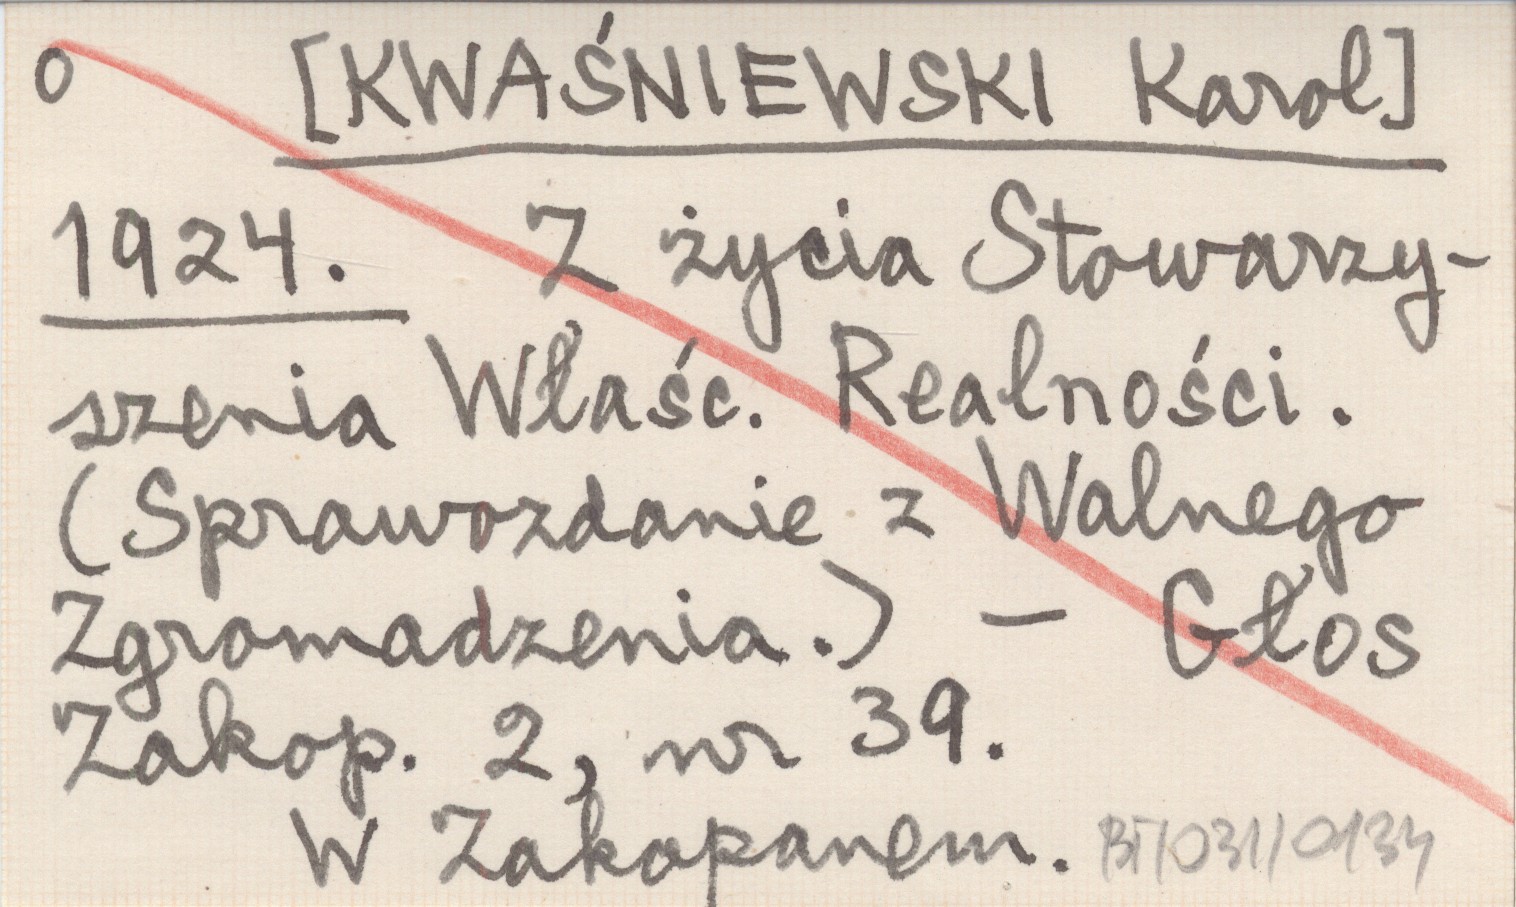 0 [KWAŚNIEWSKI Karol]
1924. Z życia Stowarzy-
szenia Właśc. Realności.
(Sprawozdanie z Walnego
Zgromadzenia.) — Głos
Zakop. 2, nr 39.
W Zakopanem. BT/031/0134